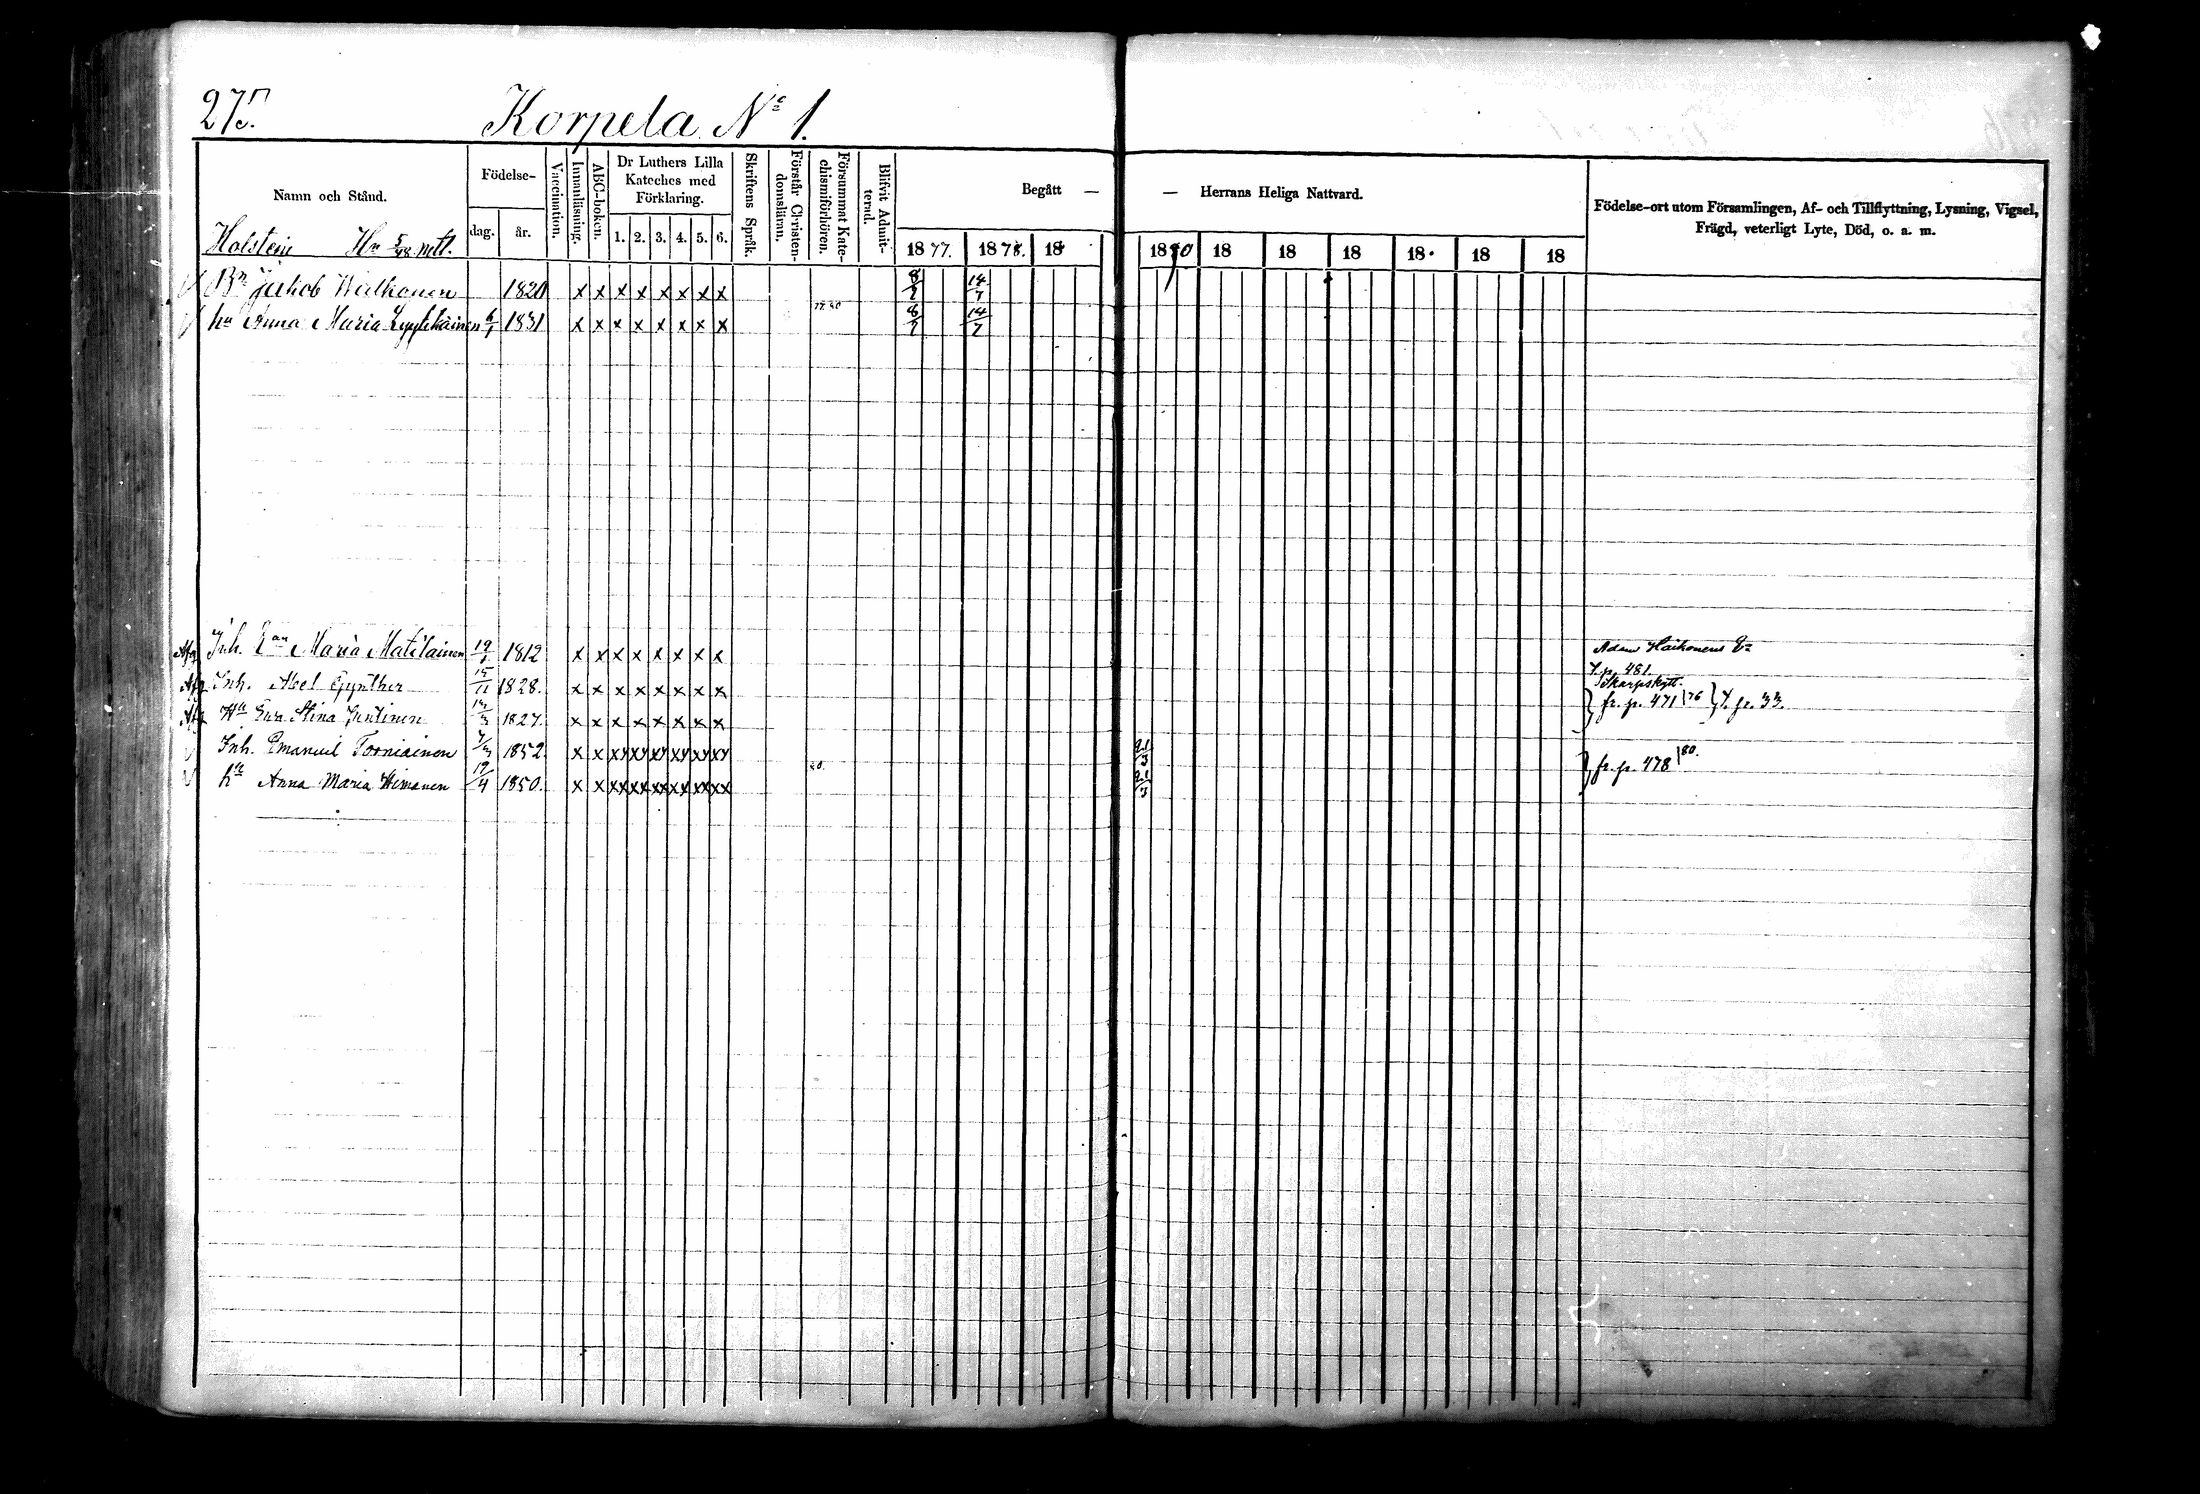 275.
Korpela Nº 1.
Namn och Stånd.
Födelse-
dag. år.
Vaccination.
Innanläsning.
ABC-boken.
Dr Luthers Lilla
Kateches med
Förklaring.
1. 2. 3. 4. 5. 6.
Skriftens Språk.
Förstår Christen-
domsläran.
Försummat Kate-
chismiförhören.
Blifvit Admit-
terad.
Begått — — Herrans Heliga Nattvard.
1877. 1878. 18 1880 18 18 18 18 18 18
Födelse-ort utom Församlingen, Af- och Tillflyttning, Lysning, Vigsel,
Frägd, veterligt Lyte, Död, o. a. m.
Holstein Hn 5/48 mtl.
Bn Jakob 1820 x x x x x x x x 8/7 14/7
hu Anna Maria 6/1 1831 x x x x x x x x 8/7 14/7
Afg Inh. Maria Matilainen 19/1 1812 x x x x x x x x Adam Haikonens
T. p. 481.
Afg Inh. Abel Gynther 15/11 1828. x x x x x x x x Skarpskytt.
Afg Hu Eva Stina 1827. x x x x x x x x fr. p. 471/76 T. p. 33.
Inh. Emanuel Torniainen 7/3 1852 x x xx xx xx xx xx xx 21/3
hu Anna Maria Heimonen 19/4 1850. x x xx xx xx xx xx xx 21/3 fr. p. 478/80.